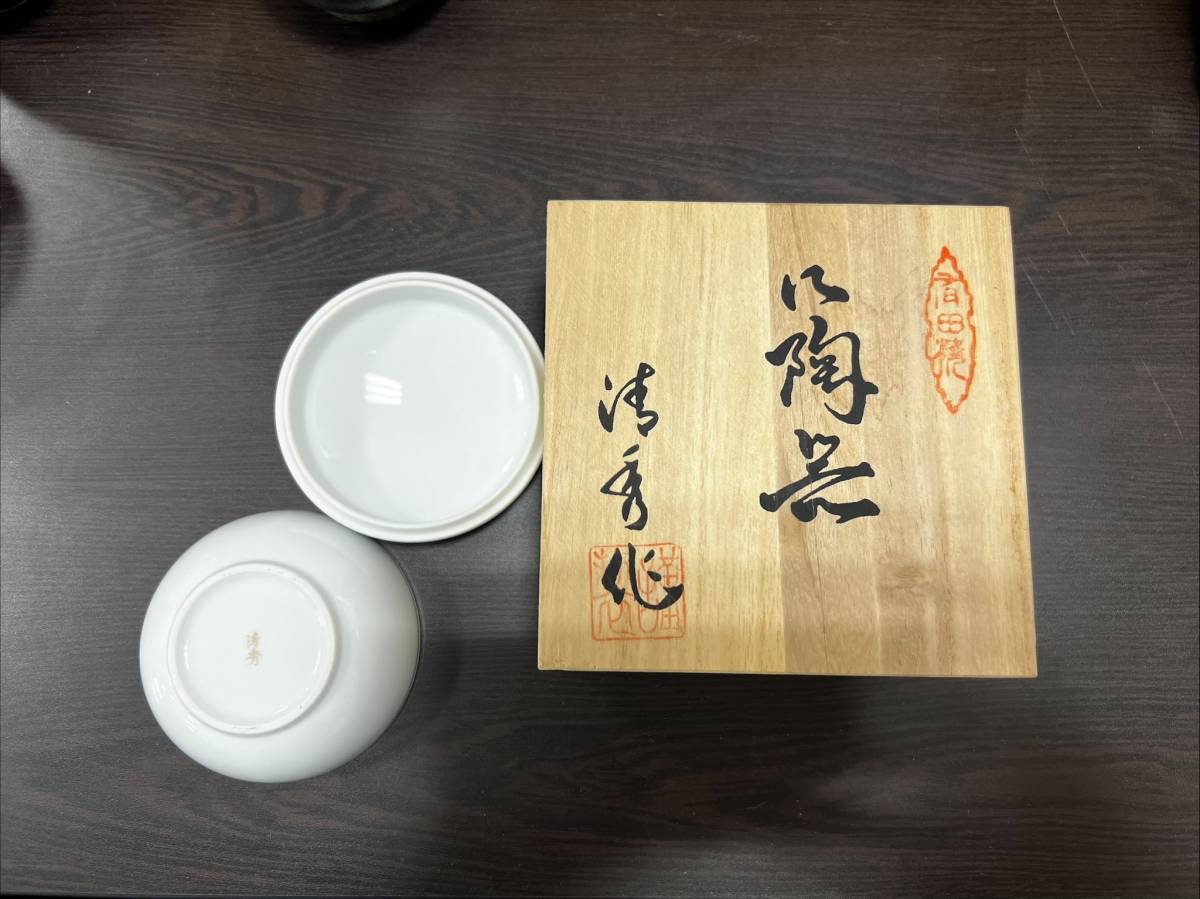 有田焼
御陶器
清秀作
清秀